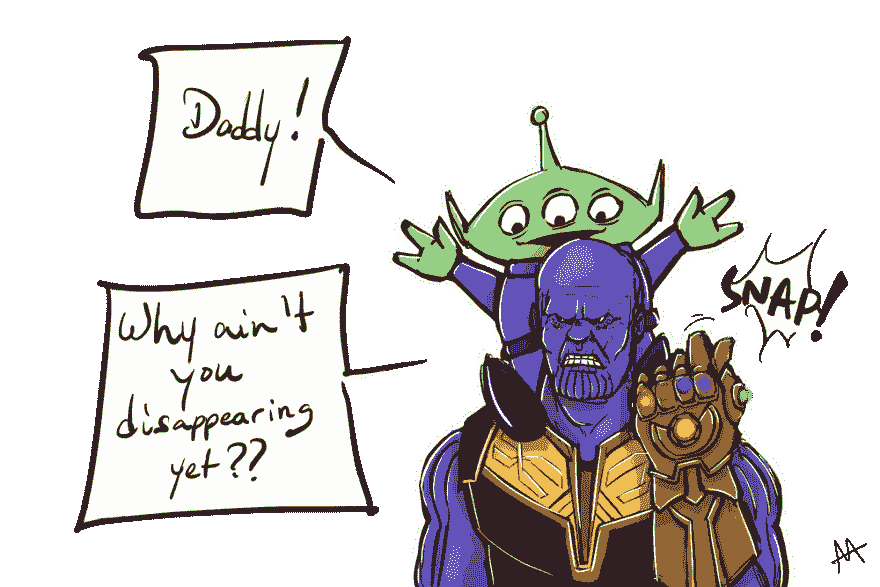 Daddy!
Why ain't
you
disappearing
yet??
SNAP!
AA